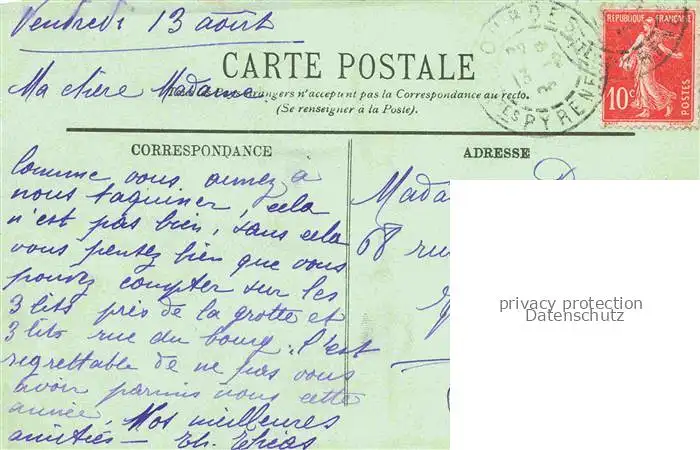 Vendredi 13 août
RÉPUBLIQUE FRANÇAISE
10c
POSTES
CARTE POSTALE
Ma chère Madame
n'acceptent pas la Correspondance au recto.
(Se renseigner à la Poste).
LOURDES
PYRENEES
CORRESPONDANCE
ADRESSE
Comme vous aimez à
nous taquiner, cela
n'est pas bien, sans cela
vous pensez bien que vous
pouvez compter sur les
3 lits près de la grotte et
3 lits rue du bourg. C'est
regrettable de ne pas vous
avoir parmis nous cette
année. Nos meilleures
amitiés —
Mada
68 rue
privacy protection
Datenschutz